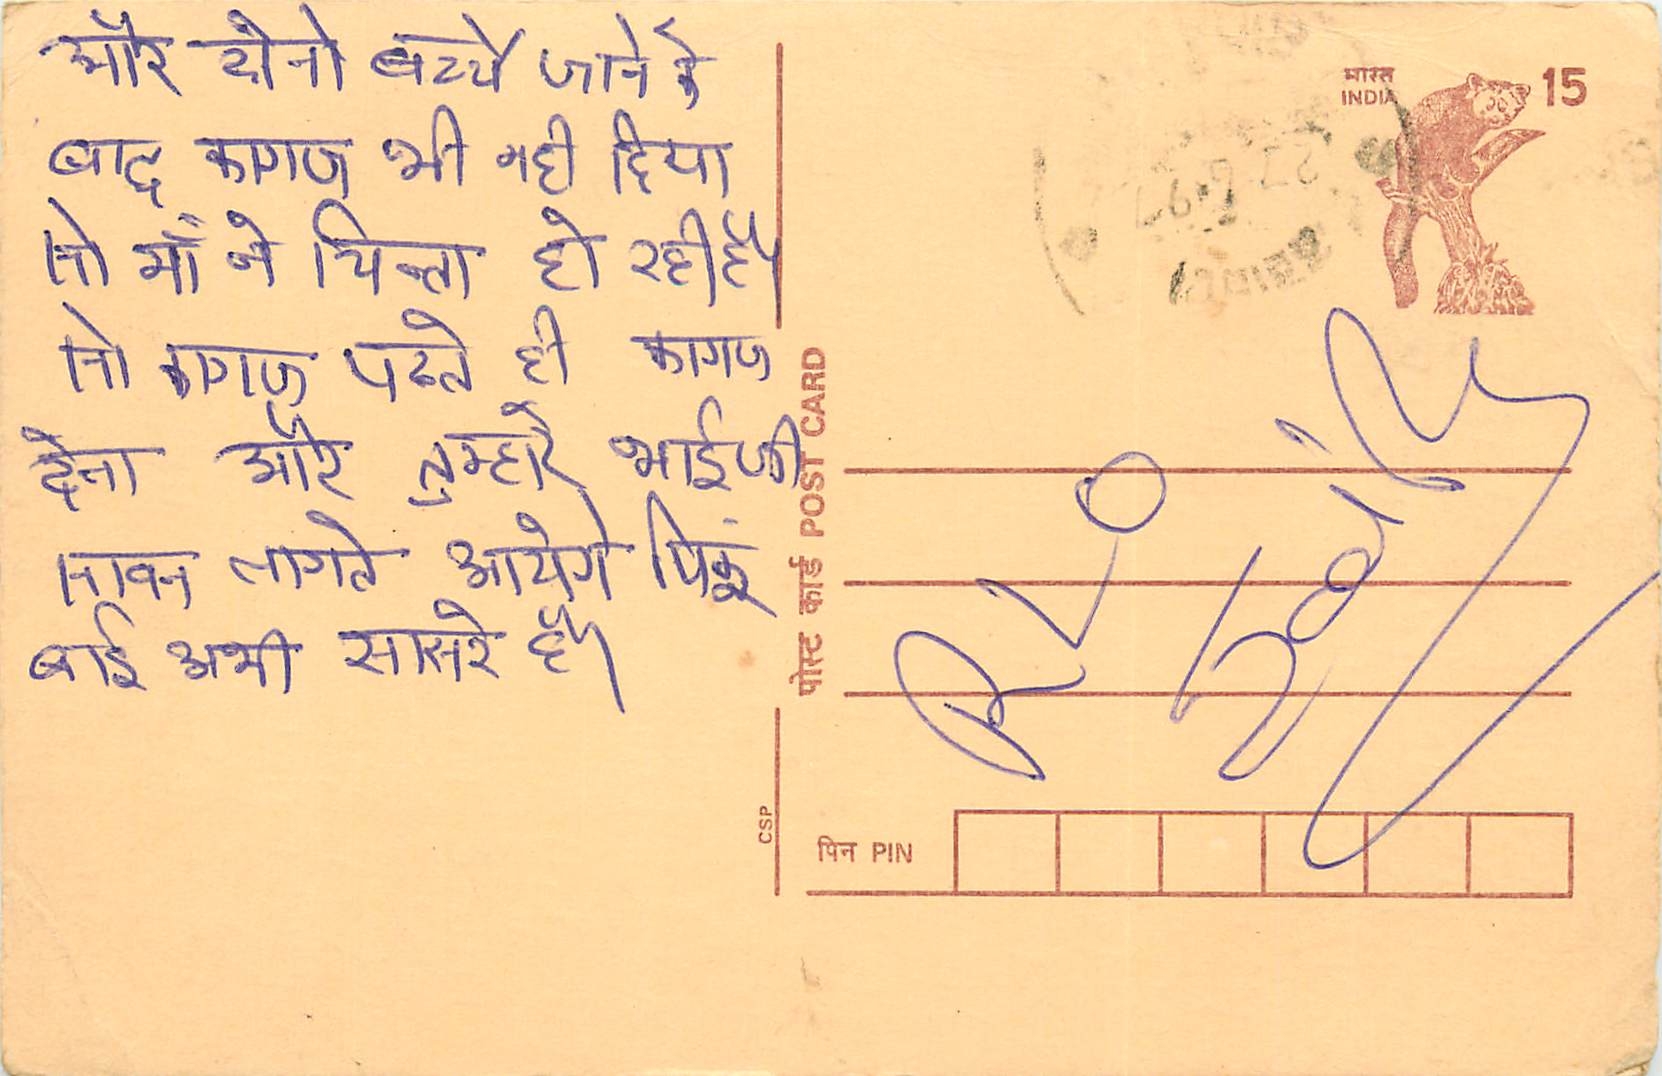 और दोनो बच्चे जाने के
बाद कागज भी नही दिया
तो माँ ने चिन्ता हो रही है।
तो कागज पढते ही कागज
देना और तुम्हारे भाईजी
लागते आयेगे
बाई अभी सासरे है।
भारत
INDIA
15
पोस्ट कार्ड POST CARD
CSP
पिन PIN